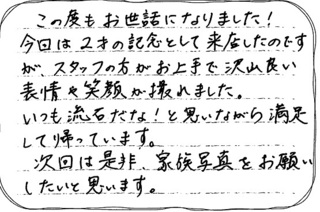 この度もお世話になりました！
今回は2才の記念として来店したのです
が、スタッフの方がお上手で沢山良い
表情や笑顔が撮れました。
いつも流石だな！と思いながら満足
して帰っています。
次回は是非、家族写真をお願い
したいと思います。